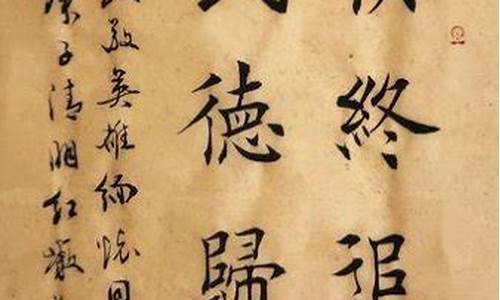 終追
民德歸
敬英雄緬懷
子清明紅